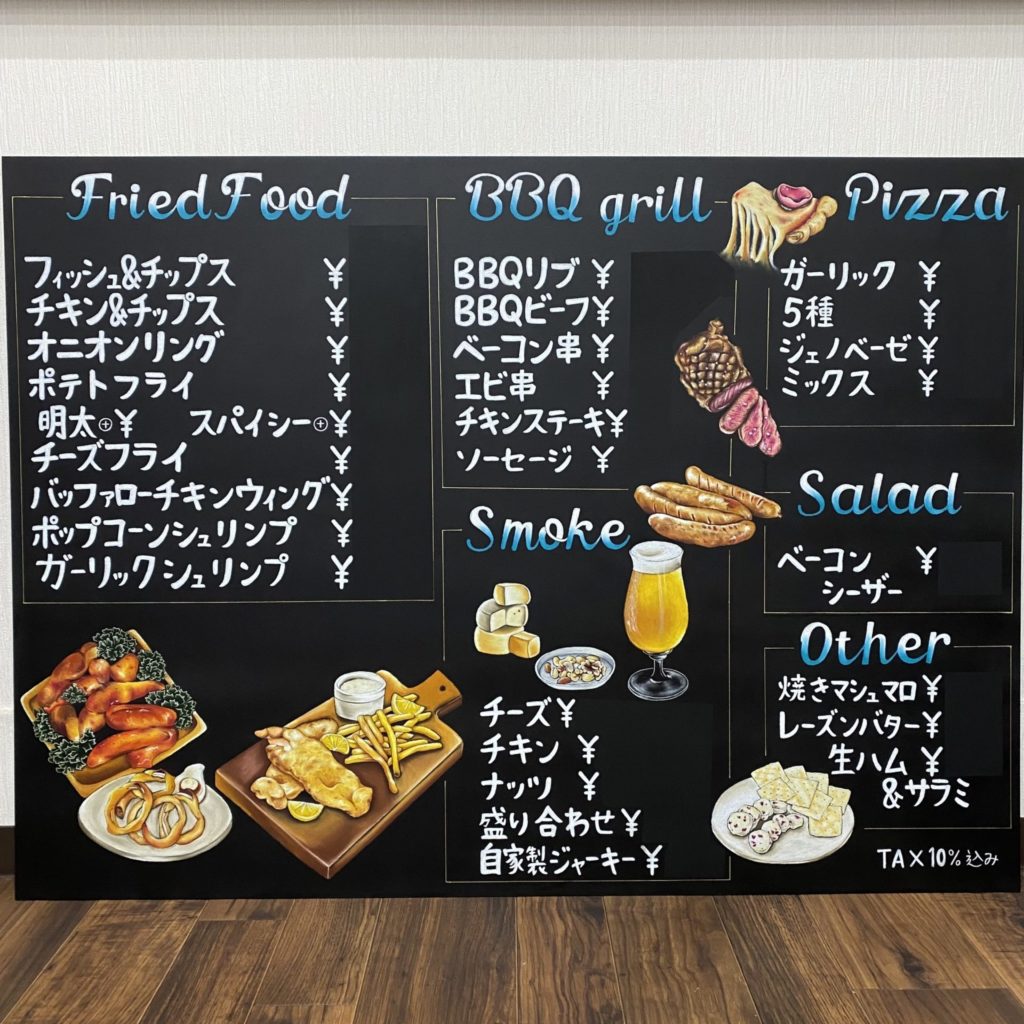 Fried Food
フィッシュ&チップス ¥
チキン&チップス ¥
オニオンリング ¥
ポテトフライ ¥
明太⊕¥ スパイシー⊕¥
チーズフライ ¥
バッファローチキンウィング¥
ポップコーンシュリンプ ¥
ガーリックシュリンプ ¥
BBQ grill
BBQリブ ¥
BBQビーフ¥
ベーコン串 ¥
エビ串 ¥
チキンステーキ¥
ソーセージ ¥
Smoke
チーズ¥
チキン ¥
ナッツ ¥
盛り合わせ¥
自家製ジャーキー¥
Pizza
ガーリック ¥
5種 ¥
ジェノベーゼ¥
ミックス ¥
Salad
ベーコン ¥
シーザー
Other
焼きマシュマロ¥
レーズンバター¥
生ハム ¥
&サラミ
TAX10%込み